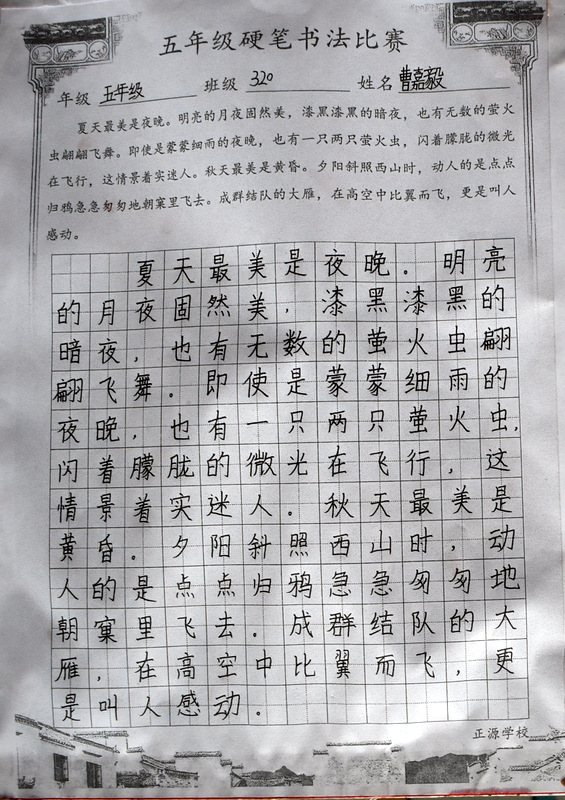 五年级硬笔书法比赛
年级 五年级 班级 320 姓名 曹嘉毅
夏天最美是夜晚。明亮的月夜固然美，漆黑漆黑的暗夜，也有无数的萤火
虫翩翩飞舞。即使是蒙蒙细雨的夜晚，也有一只两只萤火虫，闪着朦胧的微光
在飞行，这情景着实迷人。秋天最美是黄昏。夕阳斜照西山时，动人的是点点
归鸦急急匆匆地朝窠里飞去。成群结队的大雁，在高空中比翼而飞，更是叫人
感动。
夏天最美是夜晚。明亮
的月夜固然美，漆黑漆黑的
暗夜，也有无数的萤火虫翩
翩飞舞。即使是蒙蒙细雨的
夜晚，也有一只两只萤火虫，
闪着朦胧的微光在飞行，这
情景着实迷人。秋天最美是
黄昏。夕阳斜照西山时，动
人的是点点归鸦急急匆匆地
朝窠里飞去。成群结队的大
雁，在高空中比翼而飞，更
是叫人感动。
正源学校